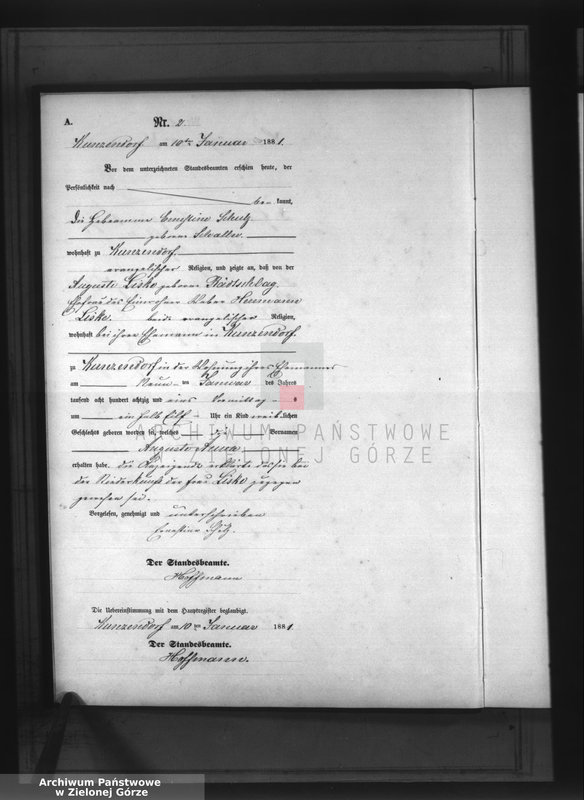 A.
Nr. 2
Kunzendorf am 10ten Januar 1881.
Vor dem unterzeichneten Standesbeamten erschien heute, der
Persönlichkeit nach
be- kannt,
die Hebeamme Ernestine Schulz
geborene
wohnhaft zu Kunzendorf,
evangelischer Religion, und zeigte an, daß von der
Auguste Liske geborene
Ehefrau des Einwohner Weber Hermann
Liske, beide evangelischer Religion,
wohnhaft bei ihrem Ehemann in Kunzendorf.
zu Kunzendorf in der Wohnung ihres Ehemannes
am Neun-ten Januar des Jahres
tausend acht hundert achtzig und eins Vormittags
um ein halb Elf Uhr ein Kind weib-lichen
Geschlechts geboren worden sei, welches Vornamen
Auguste Anna
erhalten habe. Die Anzeigende erklärte daß sie bei
der Niederkunft der Frau Liske zugegen
gewesen sei.
Vorgelesen, genehmigt und unterschrieben
Ernestine
Der Standesbeamte.
Hoffmann
Die Uebereinstimmung mit dem Hauptregister beglaubigt.
Kunzendorf am 10ten Januar 1881.
Der Standesbeamte.
Hoffmann.
ARCHIWUM PAŃSTWOWE
W ZIELONEJ GÓRZE
Archiwum Państwowe
w Zielonej Górze